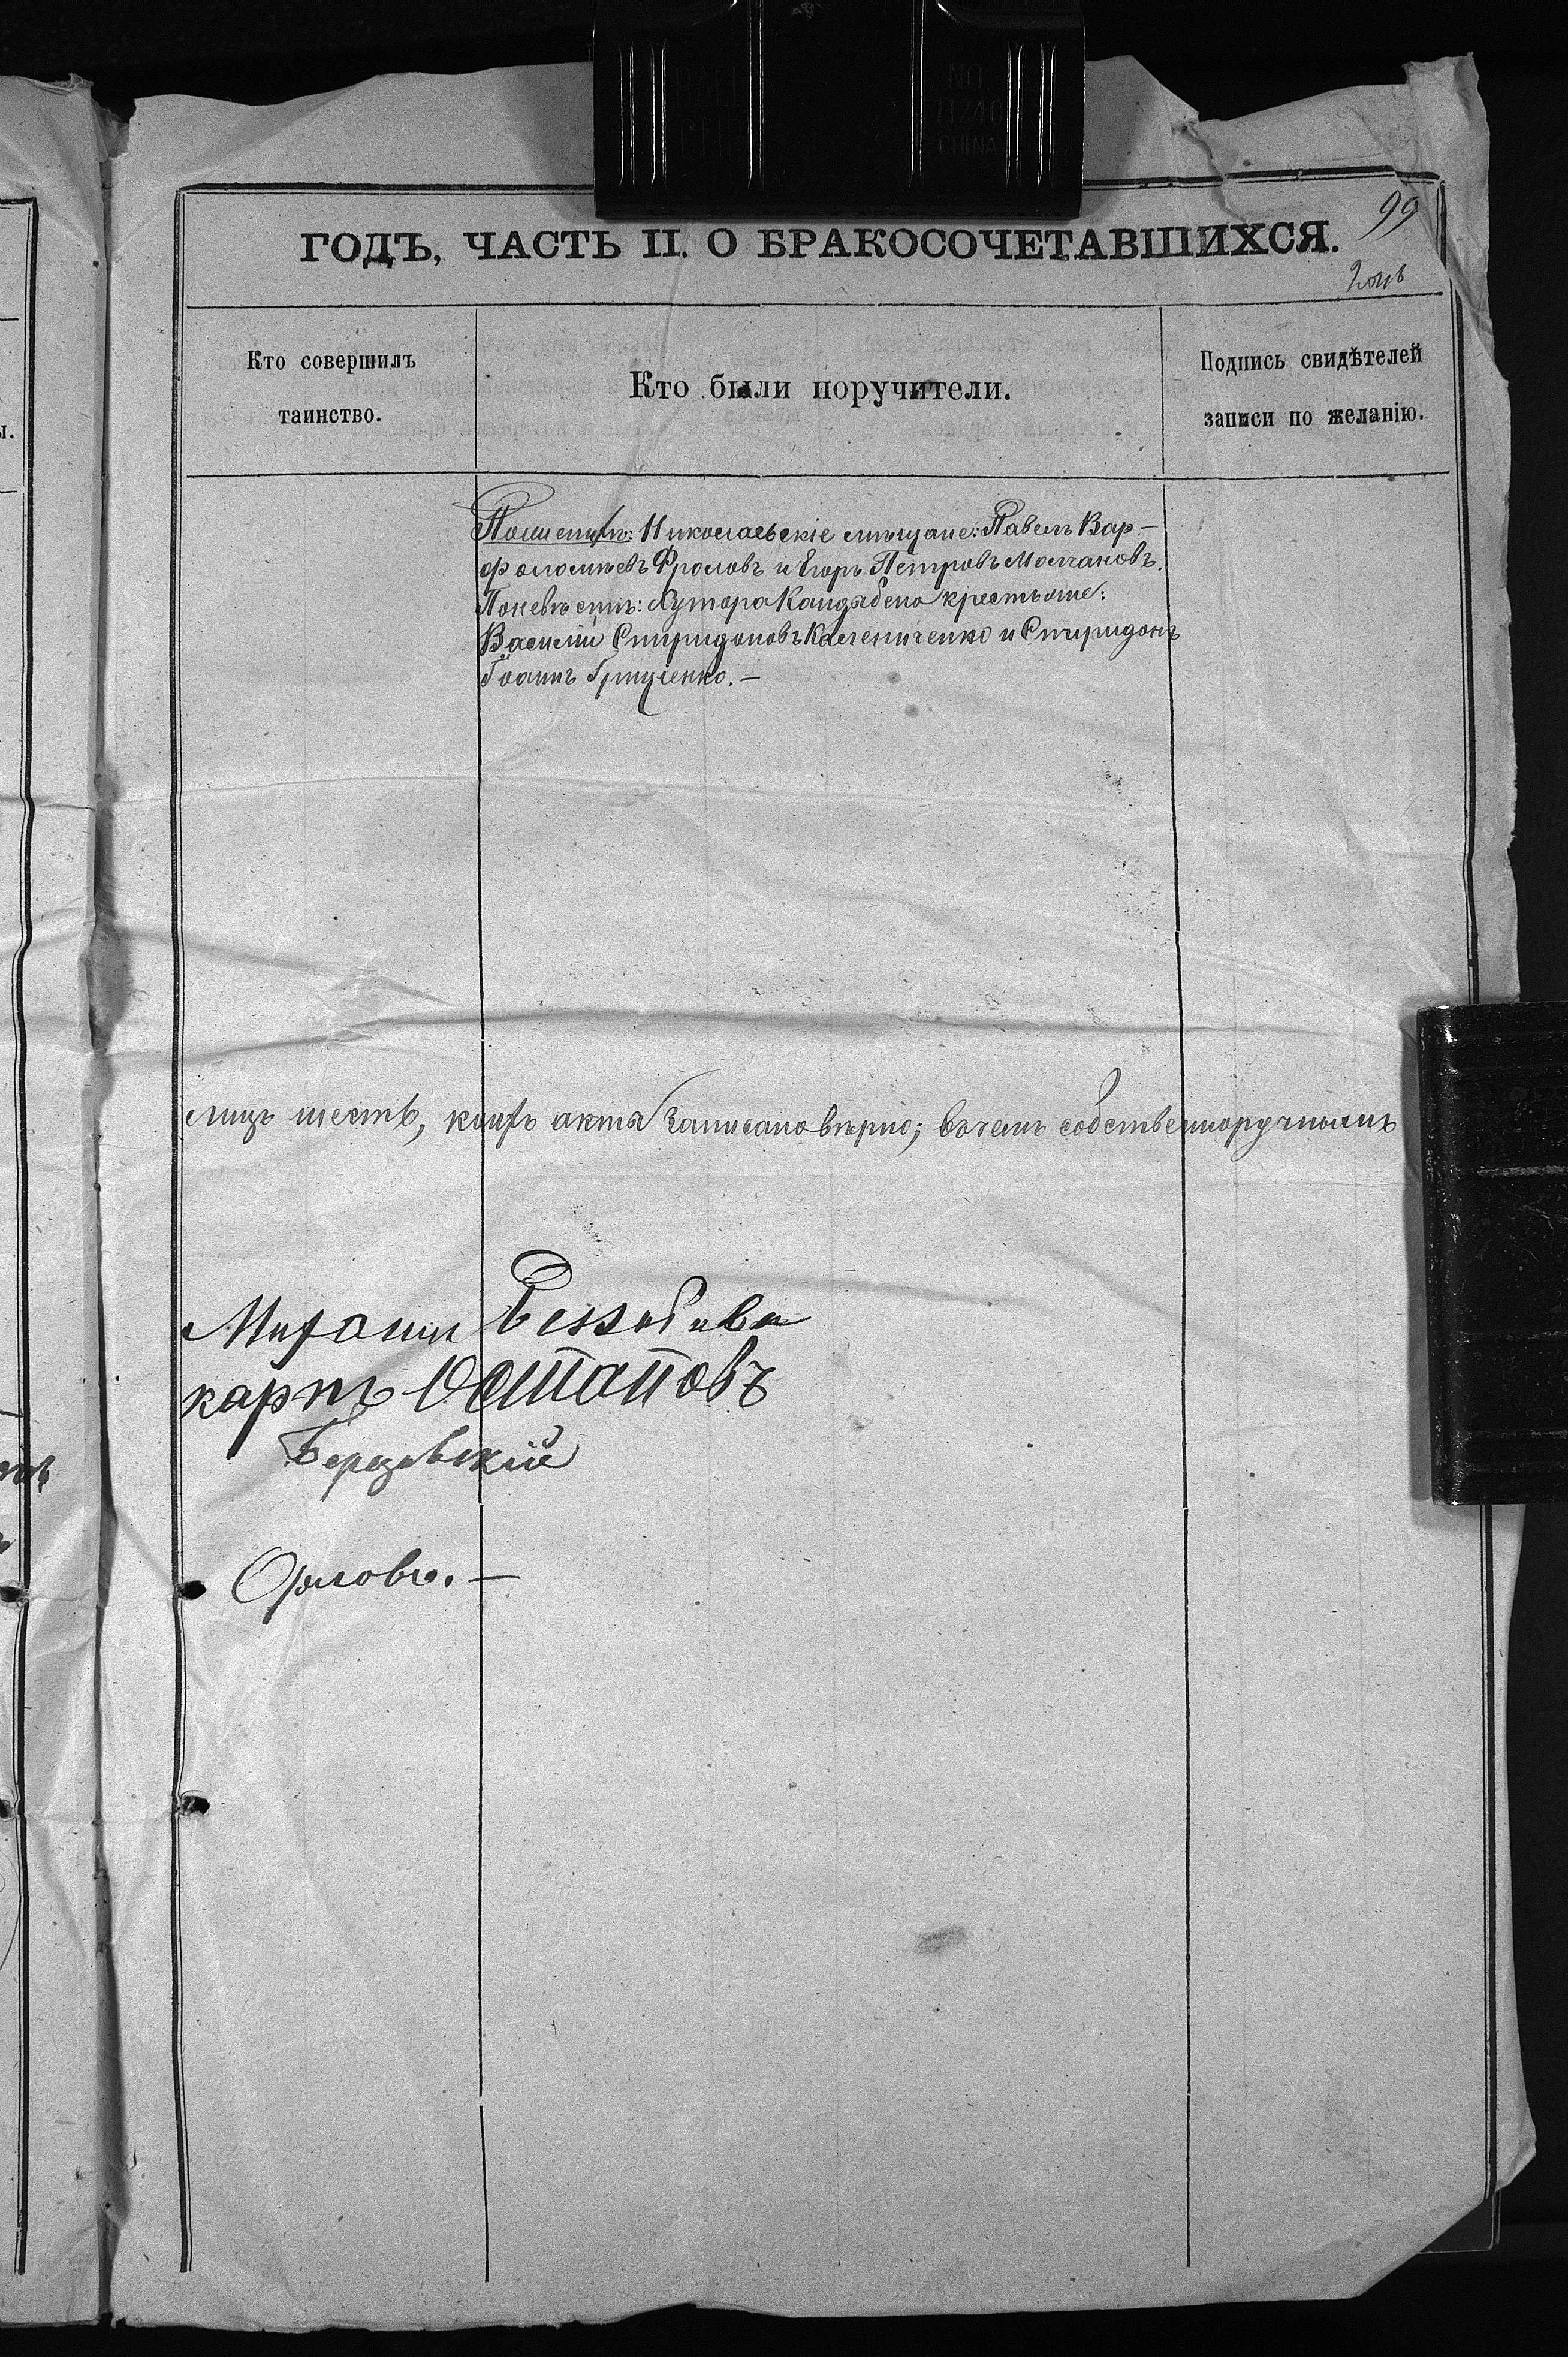 99
ГОДЪ, ЧАСТЬ II. О БРАКОСОЧЕТАВШИХСЯ.
Кто совершилъ таинство.
Кто были поручители.
Подпись свидѣтелей записи по желанію.
По женихѣ: Николаевскіе мѣщане: Павелъ Вар-
фоломѣевъ Фроловъ и Егоръ Петровъ Молчановъ.
По невѣстѣ: Хутора крестьяне:
Василій Спиридоновъ Калениченко и Спиридонъ
Іоаннъ Гриценко. —
лицъ шесть, коихъ акта записано вѣрно; въ чемъ собственноручнымъ
Остаповъ
Березовскій
Орловъ. —